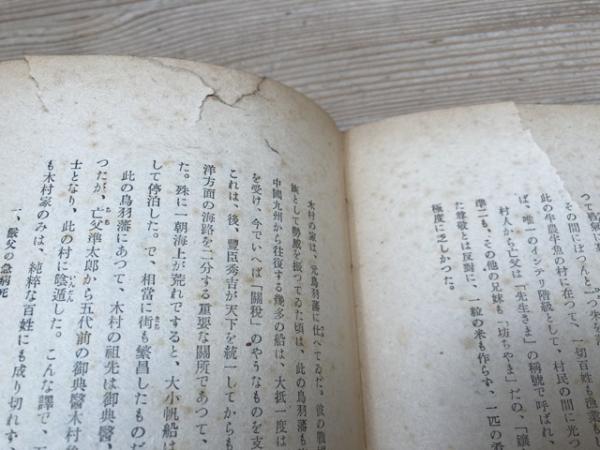 つて
その間にぽつんと
此の半農半魚の村に在つて、一切百姓も漁業も
ば、唯一のインテリ階級として、村民の間に光つ
村人から亡父は「先生さま」の稱號で呼ばれ、
準二も、その他の兄妹も「坊ちやま」だの、「孃
た尊敬とは反對に、一粒の米も作らず、一匹の
極度に乏しかつた。
木村の家は、元鳥羽藩に仕へてゐた。彼の
族として勢威を振つてゐた頃は、此の鳥羽藩も
中國九州から往復する幾多の船は、大抵一度は
を受け、今でいへば「關稅」のやうなものを支
これは、後、豐臣秀吉が天下を統一してからも
洋方面の海路を二分する重要な關所であつて、
た。殊に一朝海上が荒れですると、大小帆船は
して停泊した。で、相當に街も繁昌したものだ
此の鳥羽藩にあつて、木村の祖先は御典醫、
つたが、亡父準太郎から五代前の御典醫木村
士となり、此の村に陰遁した。こんな譯で、天
も木村家のみは、純粹な百姓にも成り切れず、
一、嚴父の急病死